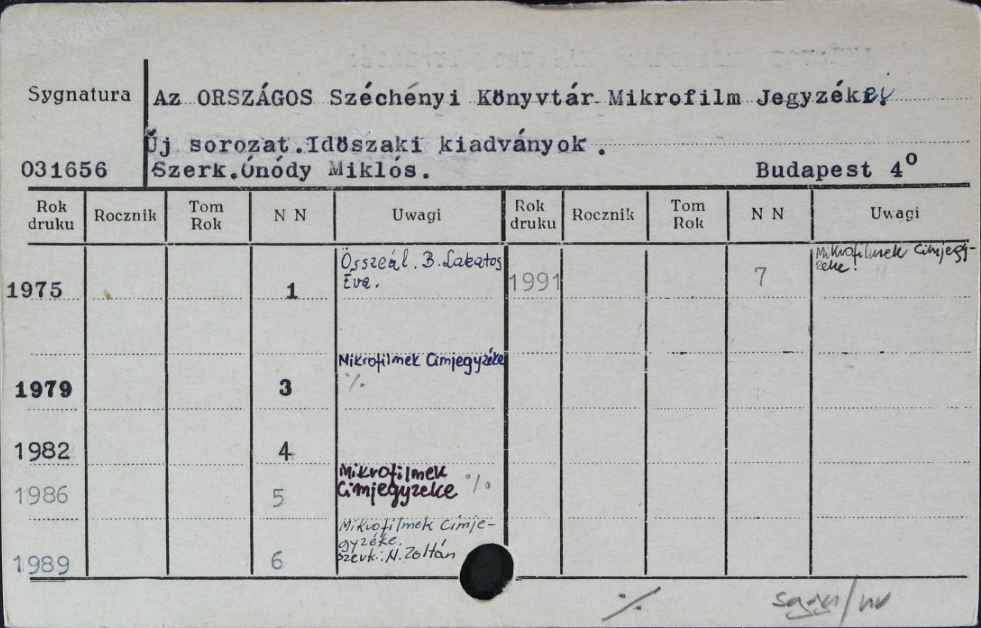 Sygnatura Az ORSZÁGOS Széchényi Könyvtár Mikrofilm Jegyzékei
Új sorozat.Időszaki kiadványok .
031656 Szerk.Ónódy Miklós. Budapest 4°
Rok druku Rocznik Tom Rok N N Uwagi Rok druku Rocznik Tom Rok N N Uwagi
1975 1 Összeál. B. Lakatos
Éva.
1991 7 Mikrofilmek Cimjegy-
zéke.
1979 3 Mikrofilmek Cimjegyzéke
%
1982 4
1986 5 Mikrofilmek
Cimjegyzeke %
1989 6 Mikrofilmek Cimje-
gyzéke.
Szerk.: N. Zoltán
%